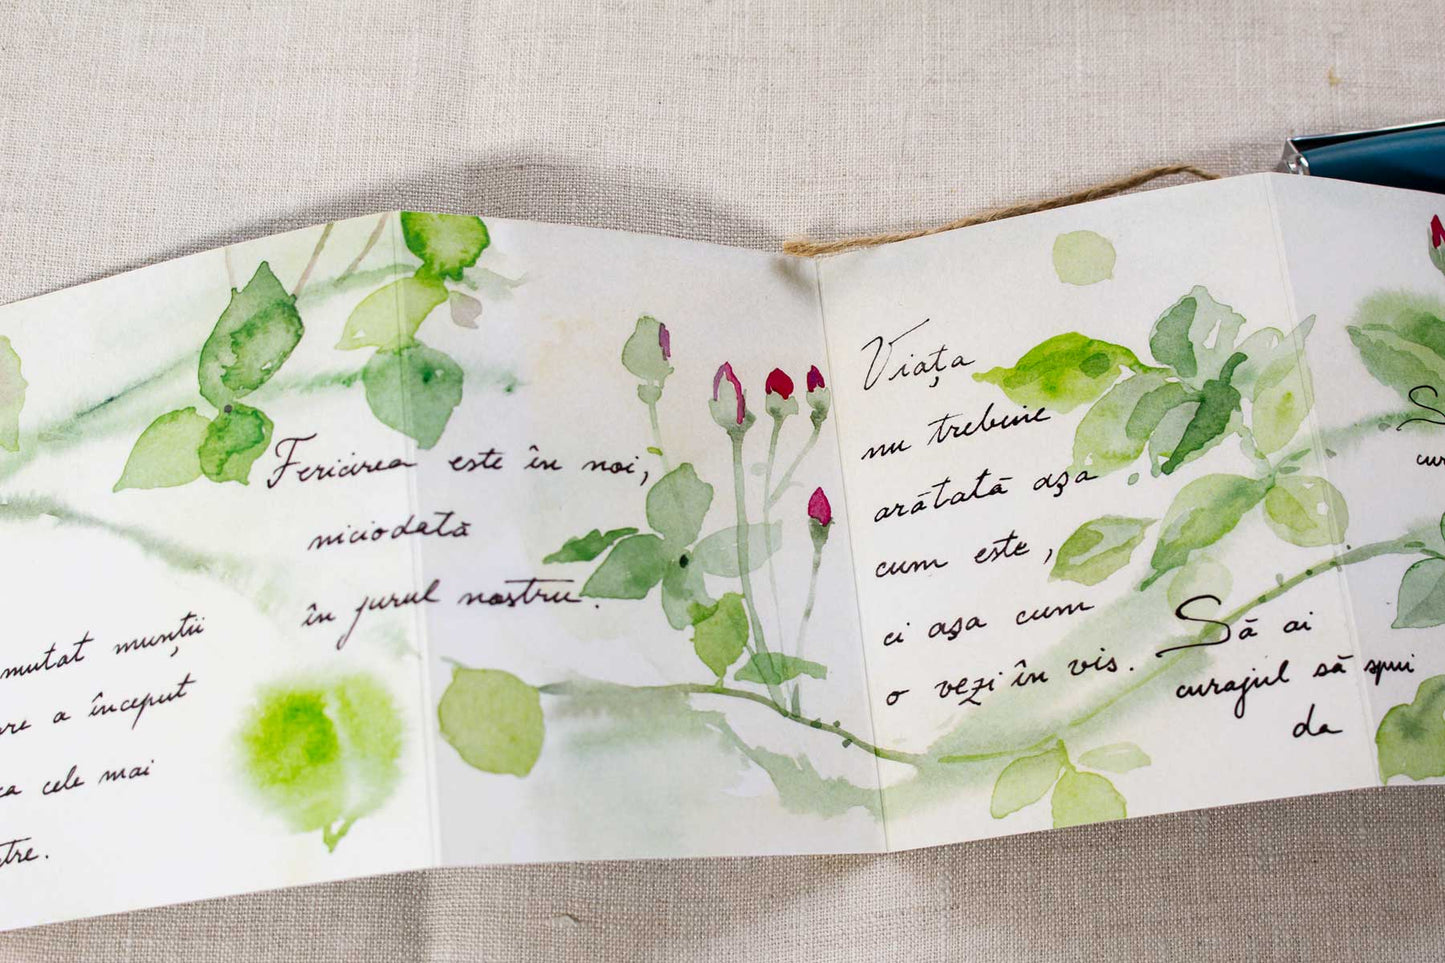 mutat munții
a început
cele mai
Fericirea este în noi,
niciodată
în jurul nostru.
Viața
nu trebuie
arătată așa
cum este,
ci așa cum
o vezi în vis.
Să ai
curajul să spui
da